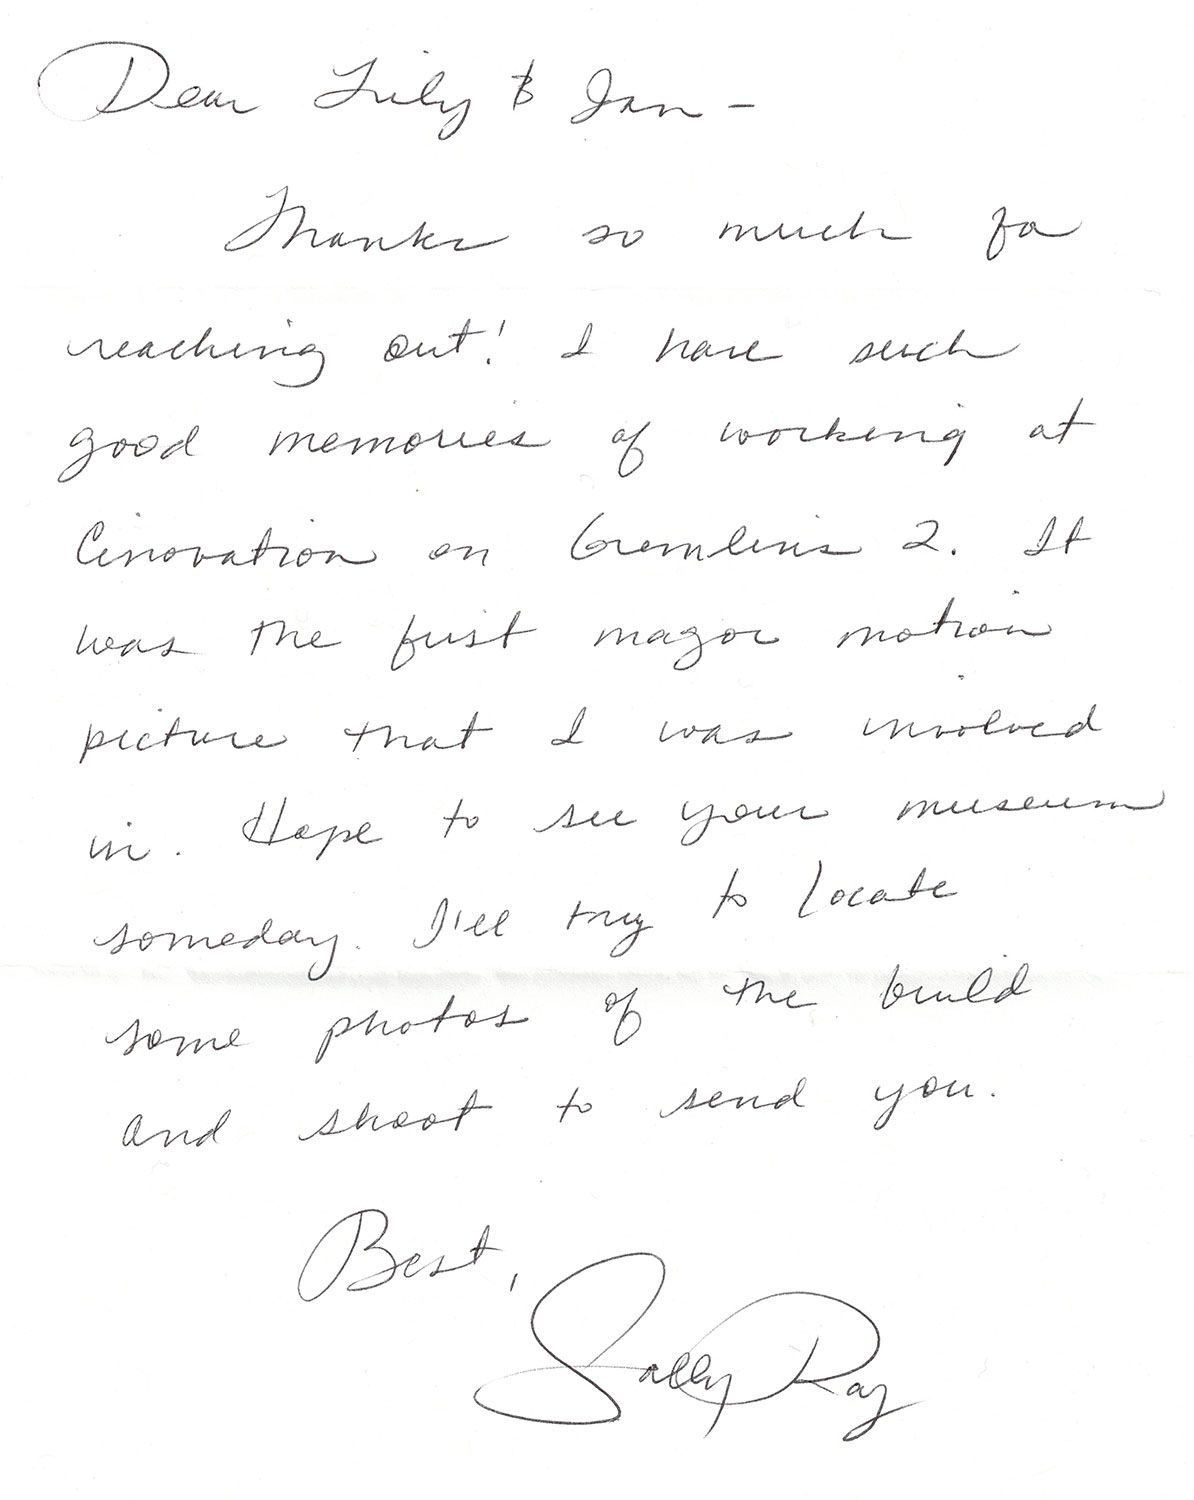 Dear Lily & Ian -
Thanks so much for
reaching out! I have such
good memories of working at
Cinovation on Gremlins 2. It
was the first major motion
picture that I was involved
in. Hope to see your museum
someday. I'll try to locate
some photos of the build
and shoot to send you.
Best,
Sally Ray